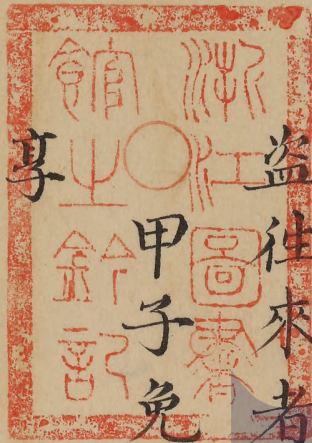 盜徃來者
甲子免
享
浙江圖書
館之鈐記